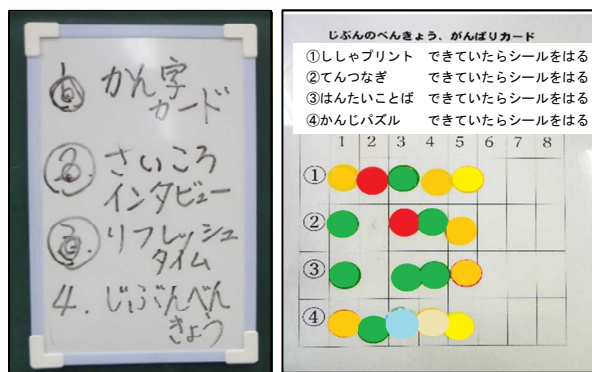 ① かん字
カード
② さいころ
インタビュー
③ リフレッシュ
タイム
4. じぶんべん
きょう
じぶんのべんきょう、がんばりカード
①ししゃプリント できていたらシールをはる
②てんつなぎ できていたらシールをはる
③はんたいことば できていたらシールをはる
④かんじパズル できていたらシールをはる
1 2 3 4 5 6 7 8
①
②
③
④